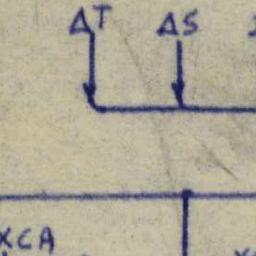 ΔT ΔS
XCA